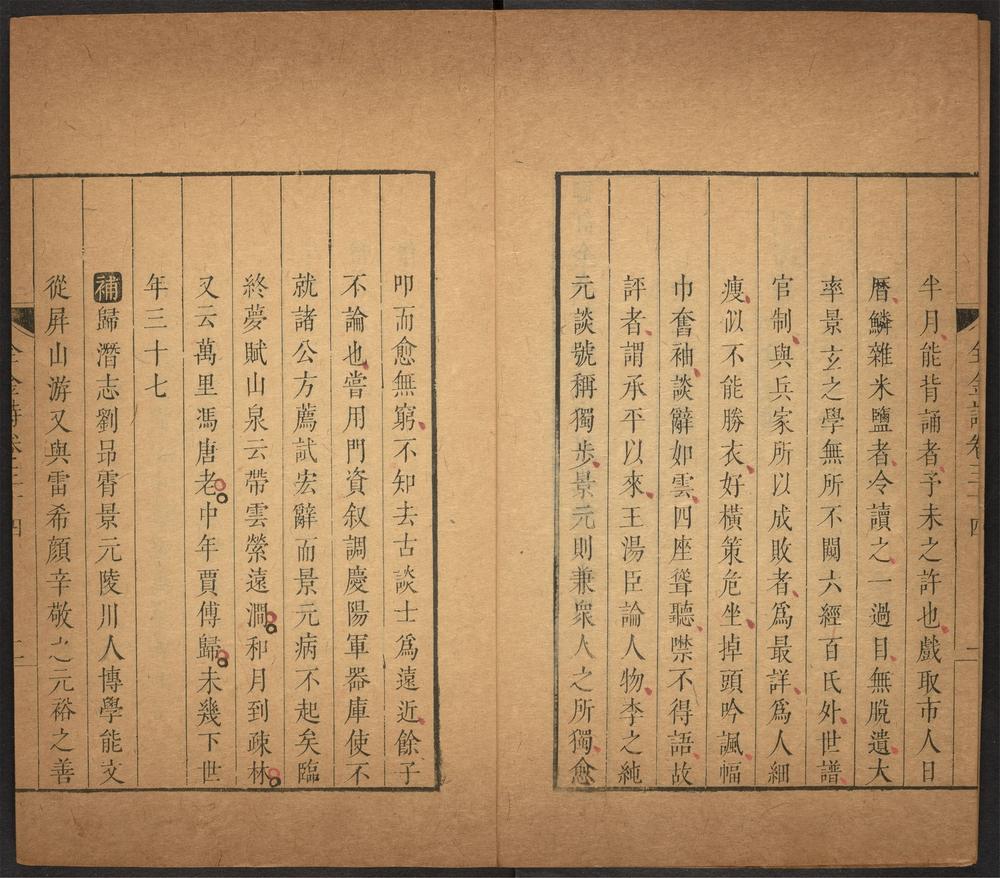 全金詩卷三十四
半月能背誦者予未之許也戲取市人日
曆鱗雜米鹽者令讀之一過目無脫遺大
率景玄之學無所不闚六經百氏外世譜
官制與兵家所以成敗者爲最詳爲人細
瘦似不能勝衣好橫策危坐掉頭吟諷幅
巾奮袖談辭如雲四座聳聽噤不得語故
評者謂承平以來王湯臣論人物李之純
元談號稱獨步景元則兼衆人之所獨愈
叩而愈無窮不知去古談士爲遠近餘子
不論也嘗用門資叙調慶陽軍器庫使不
就諸公方薦試宏辭而景元病不起矣臨
終夢賦山泉云帶雲縈遠澗和月到疎林
又云萬里馮唐老中年賈傅歸未幾下世
年三十七
補歸潛志劉昂霄景元陵川人博學能文
從屏山游又與雷希顏辛敬之元裕之善
全金詩卷三十四